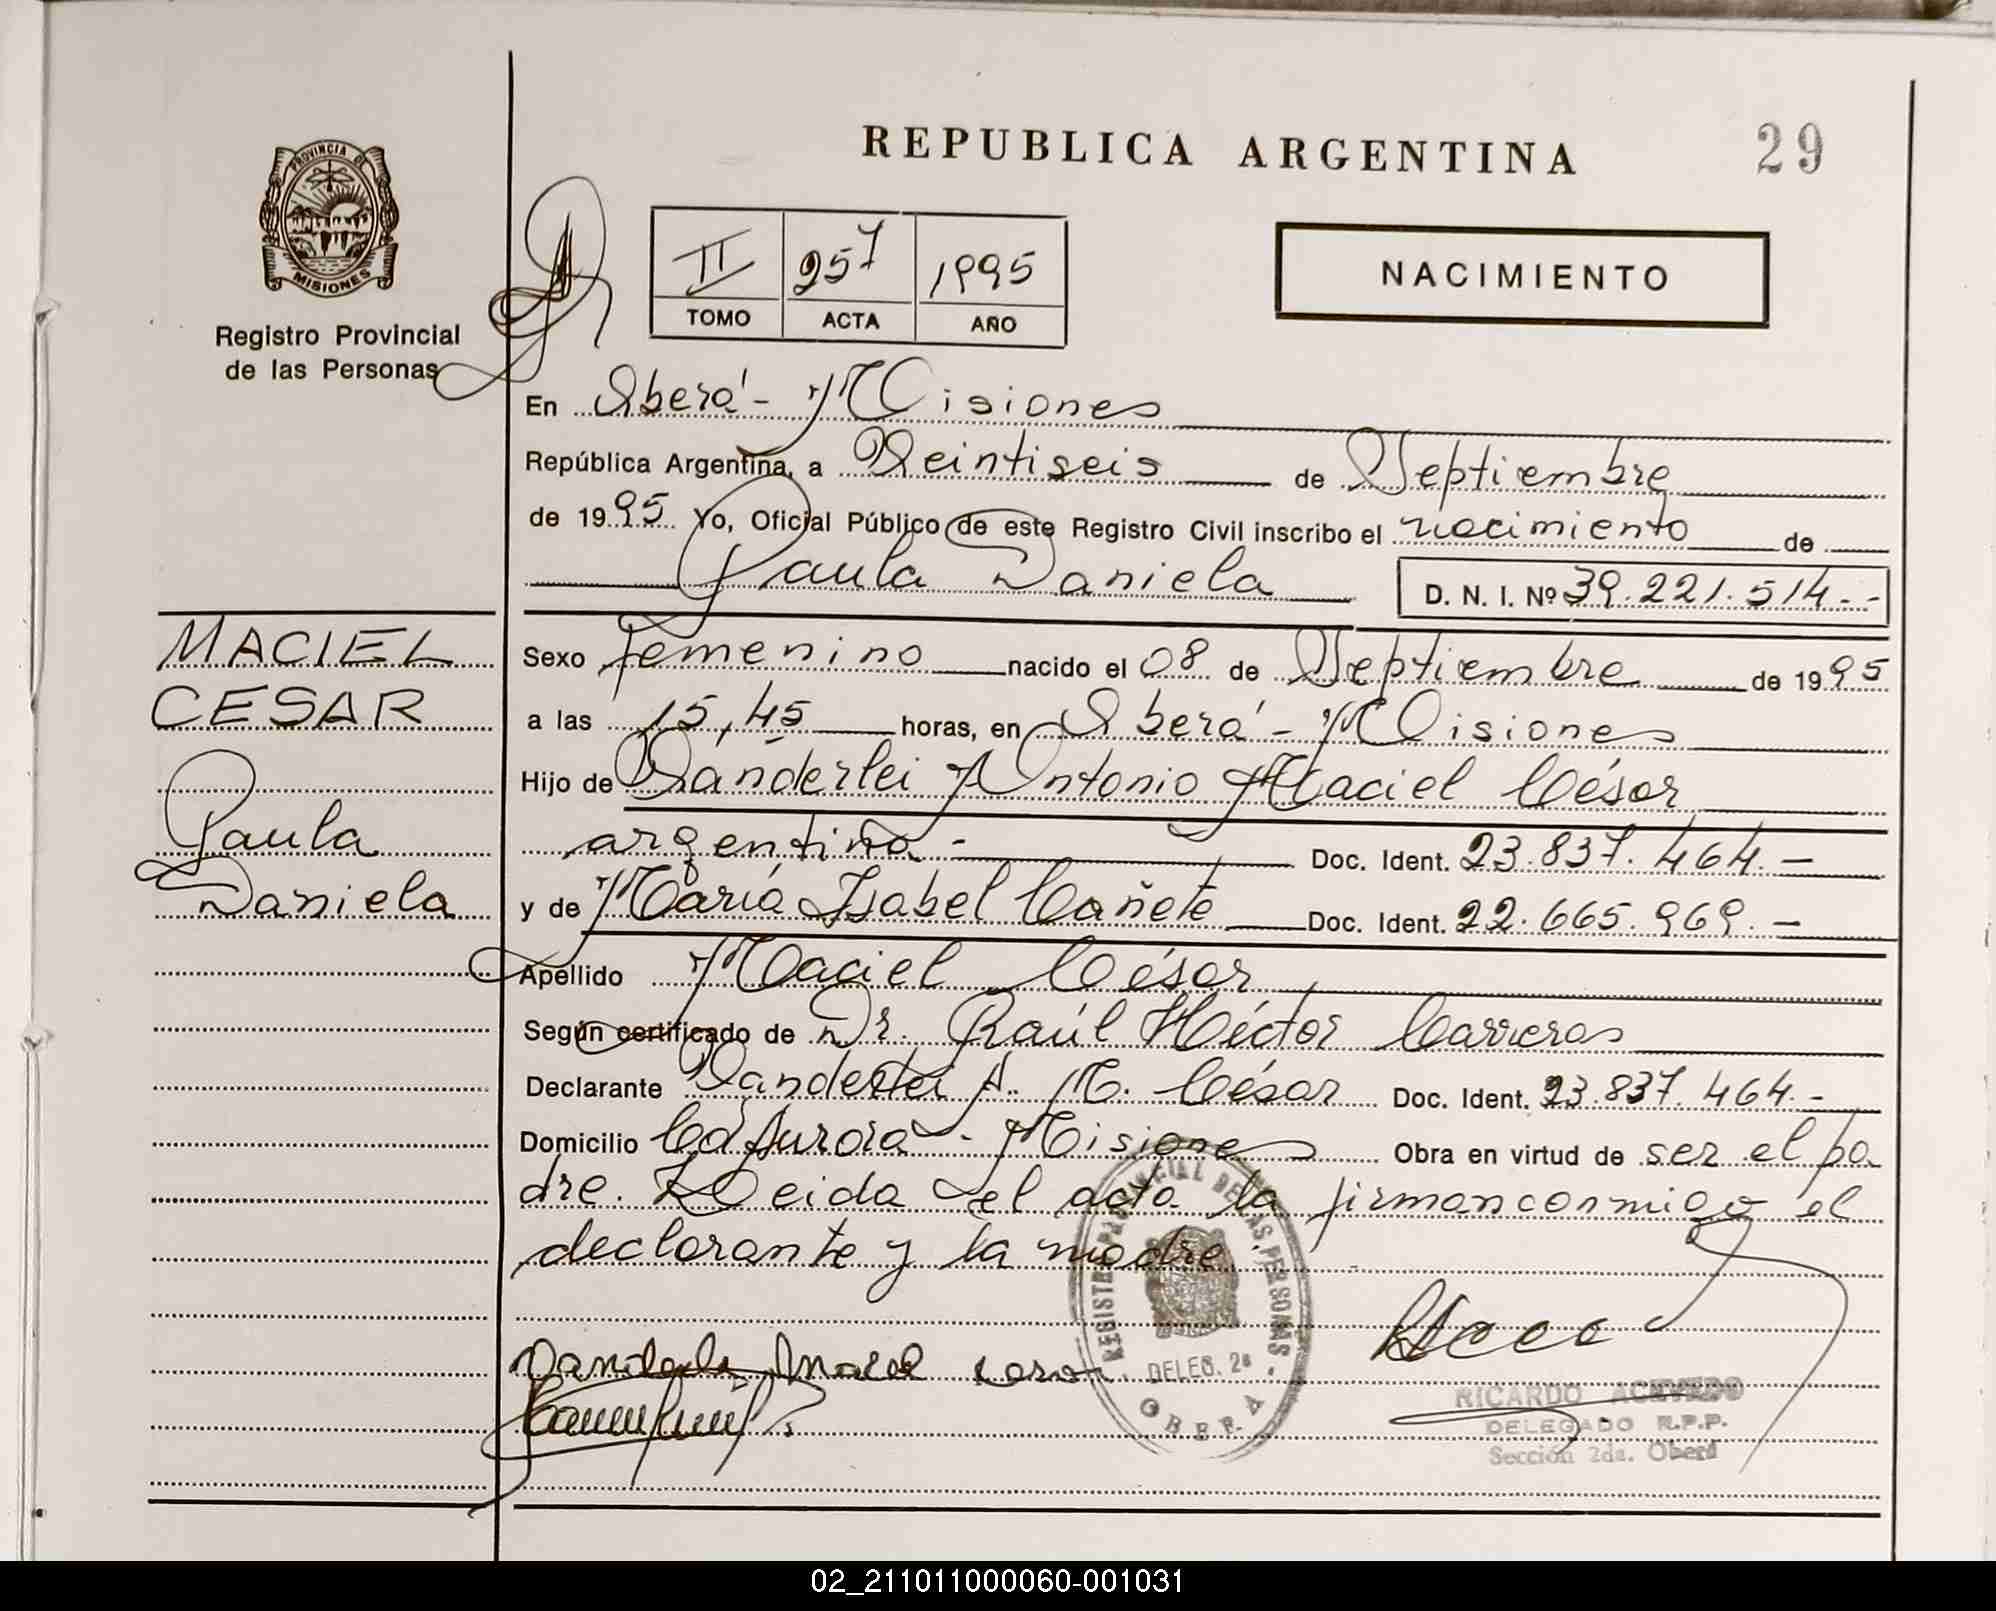 REPUBLICA ARGENTINA
29
PROVINCIA DE
MISIONES
Registro Provincial
de las Personas
II 257 1995
TOMO ACTA AÑO
NACIMIENTO
En Oberá - Misiones
República Argentina, a Veintiseis de Septiembre
de 1995 Yo, Oficial Público de este Registro Civil inscribo el nacimiento de
Paula Daniela
D. N. I. Nº 39.221.514.-
MACIEL
CESAR
Paula
Daniela
Sexo femenino nacido el 08 de Septiembre de 1995
a las 15,45 horas, en Oberá - Misiones
Hijo de Vanderlei Antonio Maciel César
argentina - Doc. Ident. 23.837.464.-
y de María Isabel Cañete Doc. Ident. 22.665.969.-
Apellido Maciel César
Según certificado de Dr. Raúl Héctor Carreras
Declarante Vanderlei A. M. César Doc. Ident. 23.837.464.-
Domicilio Cd Aurora - Misiones Obra en virtud de ser el pa
dre. Leida el acta la firman conmigo el
declarante y la madre.
REGISTRO PROVINCIAL DE LAS PERSONAS -
DELEG. 2ª
OBERA
RICARDO ACEVEDO
DELEGADO R.P.P.
Sección 2da. Oberá
02_211011000060-001031